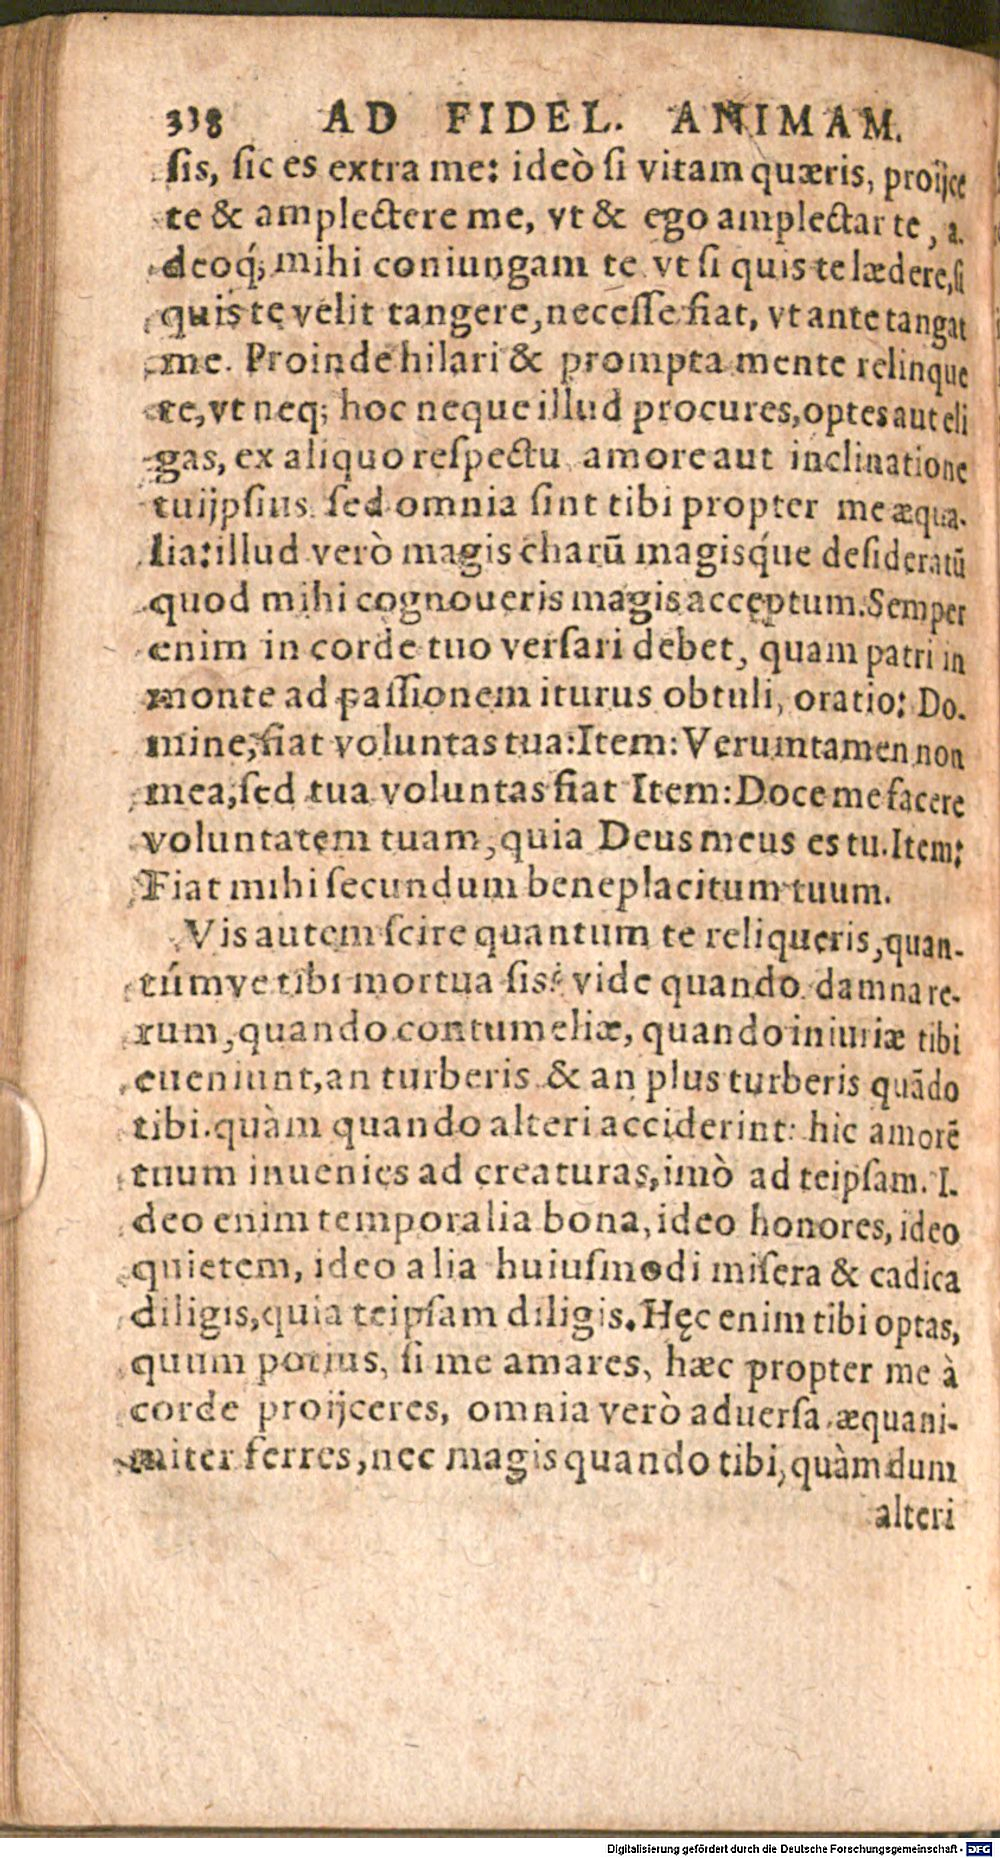 338 AD FIDEL. ANIMAM.
sis, sic es extra me: ideò si vitam quæris, proijce
te & amplectere me, vt & ego amplectar te, a-
deoq́; mihi coniungam te vt si quis te lædere, si
quis te velit tangere, necesse fiat, vt ante tangat
me. Proinde hilari & prompta mente relinque
te, vt neq; hoc neque illud procures, optes aut eli
gas, ex aliquo respectu amore aut inclinatione
tuijpsius sed omnia sint tibi propter me æqua-
lia: illud verò magis charū magisq́ue desideratū
quod mihi cognoueris magis acceptum. Semper
enim in corde tuo versari debet, quam patri in
monte ad passionem iturus obtuli, oratio: Do-
mine, fiat voluntas tua: Item: Verumtamen non
mea, sed tua voluntas fiat Item: Doce me facere
voluntatem tuam, quia Deus meus es tu. Item:
Fiat mihi secundum beneplacitum tuum.
Vis autem scire quantum te reliqueris, quan-
túmve tibi mortua sis? vide quando damna re-
rum, quando contumeliæ, quando iniuriæ tibi
eueniunt, an turberis & an plus turberis quādo
tibi quàm quando alteri acciderint: hic amorē
tuum inuenies ad creaturas, imò ad teipsam. I-
deo enim temporalia bona, ideo honores, ideo
quietem, ideo alia huiusmodi misera & cadica
diligis, quia teipsam diligis. Hęc enim tibi optas,
quum potius, si me amares, hæc propter me à
corde proijceres, omnia verò aduersa æquani-
miter ferres, nec magis quando tibi, quàm dum
alteri
Digitalisierung gefördert durch die Deutsche Forschungsgemeinschaft - DFG